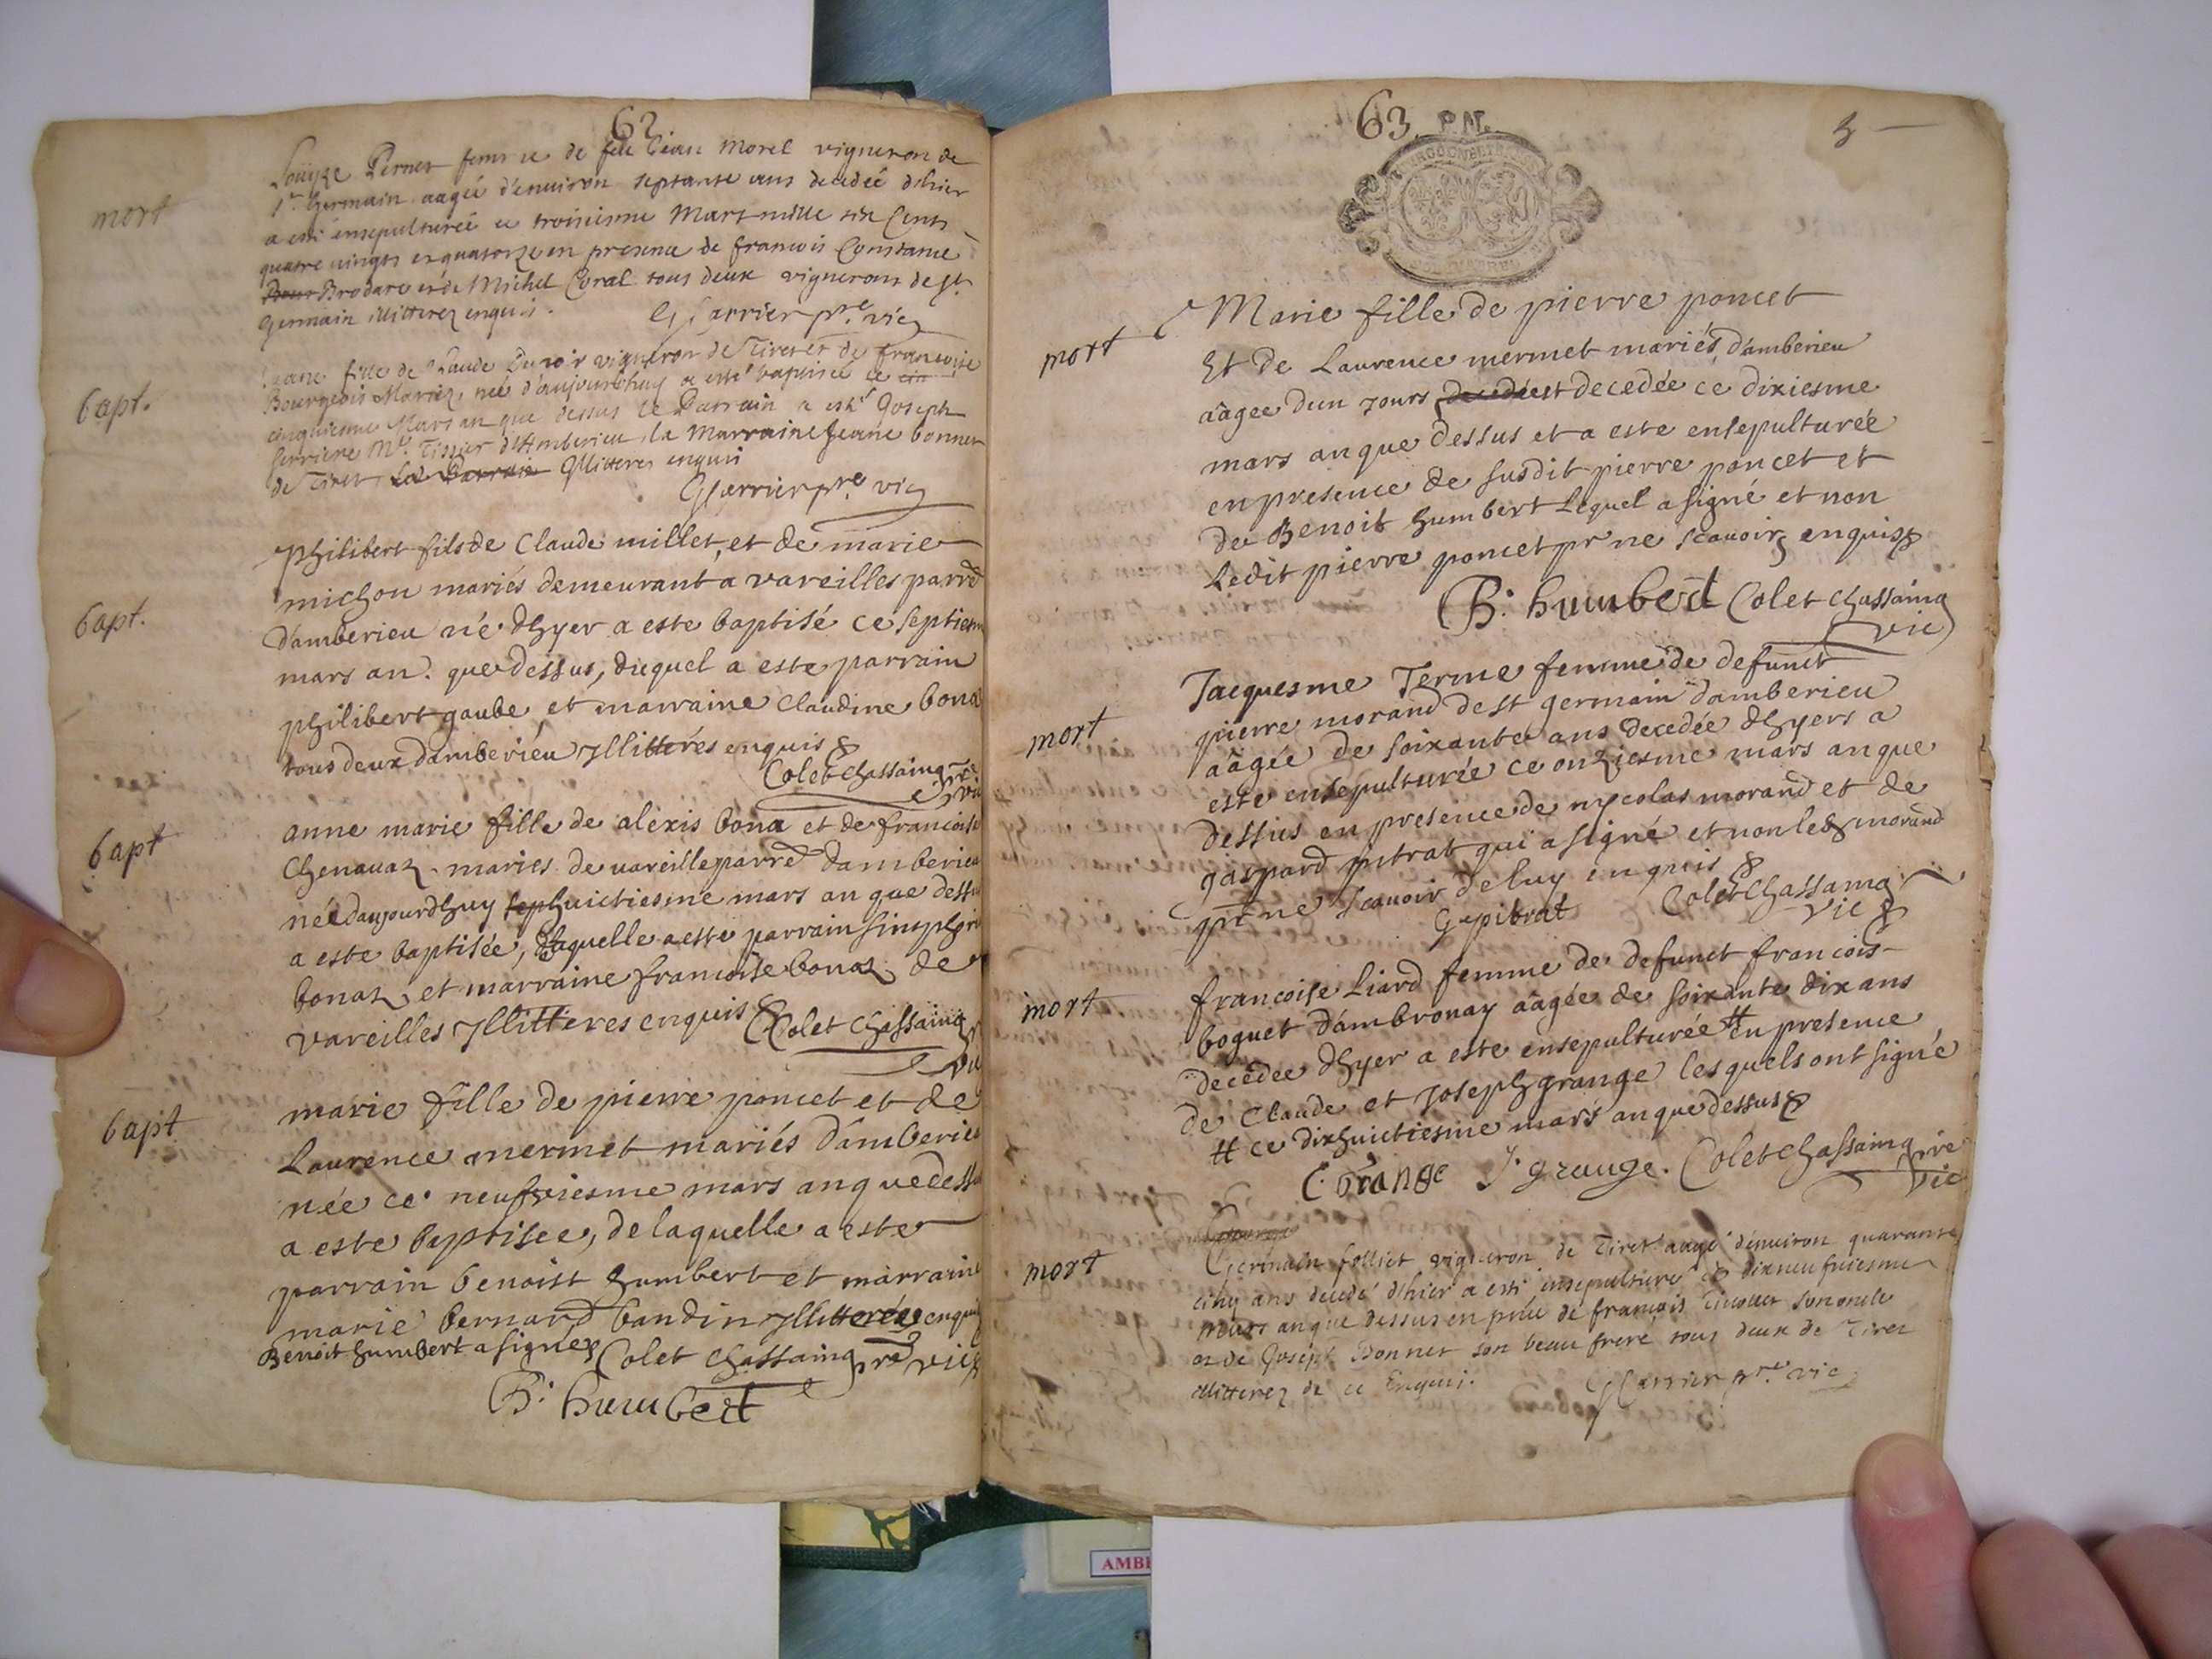 62
mort
Louyze Pernet femme de feu Jean Morel vigneron de
St Germain aagée d'environ septante ans decedée d'hier
a esté ensepulturée ce troisiesme Mars mille six Cents
quatre vingts et quatorze en presence de francois Constame
Brodare et de Michel Coral tous deux vignerons de St
Germain illitterez enquis.
Garrier pre vic
bapt.
fille de Claude Duroir vigneron de Tiret et de francoise
Bourgeois Mariez, née d'aujourdhuy a esté baptisée ce cin
cinquiesme Mars an que dessus le Parrain a esté Joseph
ferriere Me Tissier d'Amberieu, la Marraine Jeane bonnet
de Tiret Le Parrain Illitteres enquis
Garrier pre vic
bapt.
philibert fils de Claude millet, et de marie
michon mariés demeurant a vareilles parre
damberieu né dhyer a este baptisé ce septiesm
mars an. que dessus, duquel a este parrain
philibert gaube et marraine Claudine bona
tous deux damberieu yllitterés enquis
Colet Chassaing pre
vic
bapt
anne marie fille de alexis bona et de francoise
Chenavaz. maries. de vareille parre damberieu
née daujourdhuy sep huictiesme mars an que dessu
a este baptisée, de laquelle a este parrain Simphori
bonaz, et marraine francoise bonaz. de
vareilles yllitteres enquis Colet Chassaing pr
vic
bapt
marie fille de pierre poncet et de
Laurence mermet mariés d'amberieu
née ce neufviesme mars an que dessu
a este baptisée, de laquelle a este
parrain benoist humbert et marraine
marie bernard bandin yllitterées enquis
Benoit humbert a signé Colet Chassaing pre vic
B: humbert
63
P.N.
3
mort
Marie fille de pierre poncet
Et de Laurence mermet mariés damberieu
aagee dun jours decedée est decedée ce dixiesme
mars an que dessus et a este ensepulturée
en presence de susdit pierre poncet et
de Benoit humbert Lequel a signé et non
Ledit pierre poncet pr ne scavoir enquis
B: humbert Colet Chassaing
vic
mort
Jacquesme Terme femme de defunct
pierre morand de st germain damberieu
aagée de soixante ans decedée dhyers a
este ensepulturée ce onziesme mars an que
dessus en presence de nycolas morand et de
gaspard pitrat qui a signé et non led morand
pr ne scavoir de luy enquis
G pitrat Colet Chassaing
vic
mort
francoise Liard femme de defunct francois
boguet d'ambronay aagée de soixante dix ans
decedée dhyer a este ensepulturée # en presence
de Claude et Joseph grange lesquels ont signé
# ce dixhuictiesme mars an que dessus
C. Grange J. grange. Colet Chassaing pre
vic
mort
Germain folliet vigneron de Tiret aagé d'environ quarante
cinq ans decedé d'hier a esté ensepulturé ce dixneufviesme
Mars an que dessus en pnce de francois Tinollet son oncle
et de Joseph Bonnet son beau frere tous deux de Tiret
illitterez de ce Enquis.
Garrier pre vic
AMB